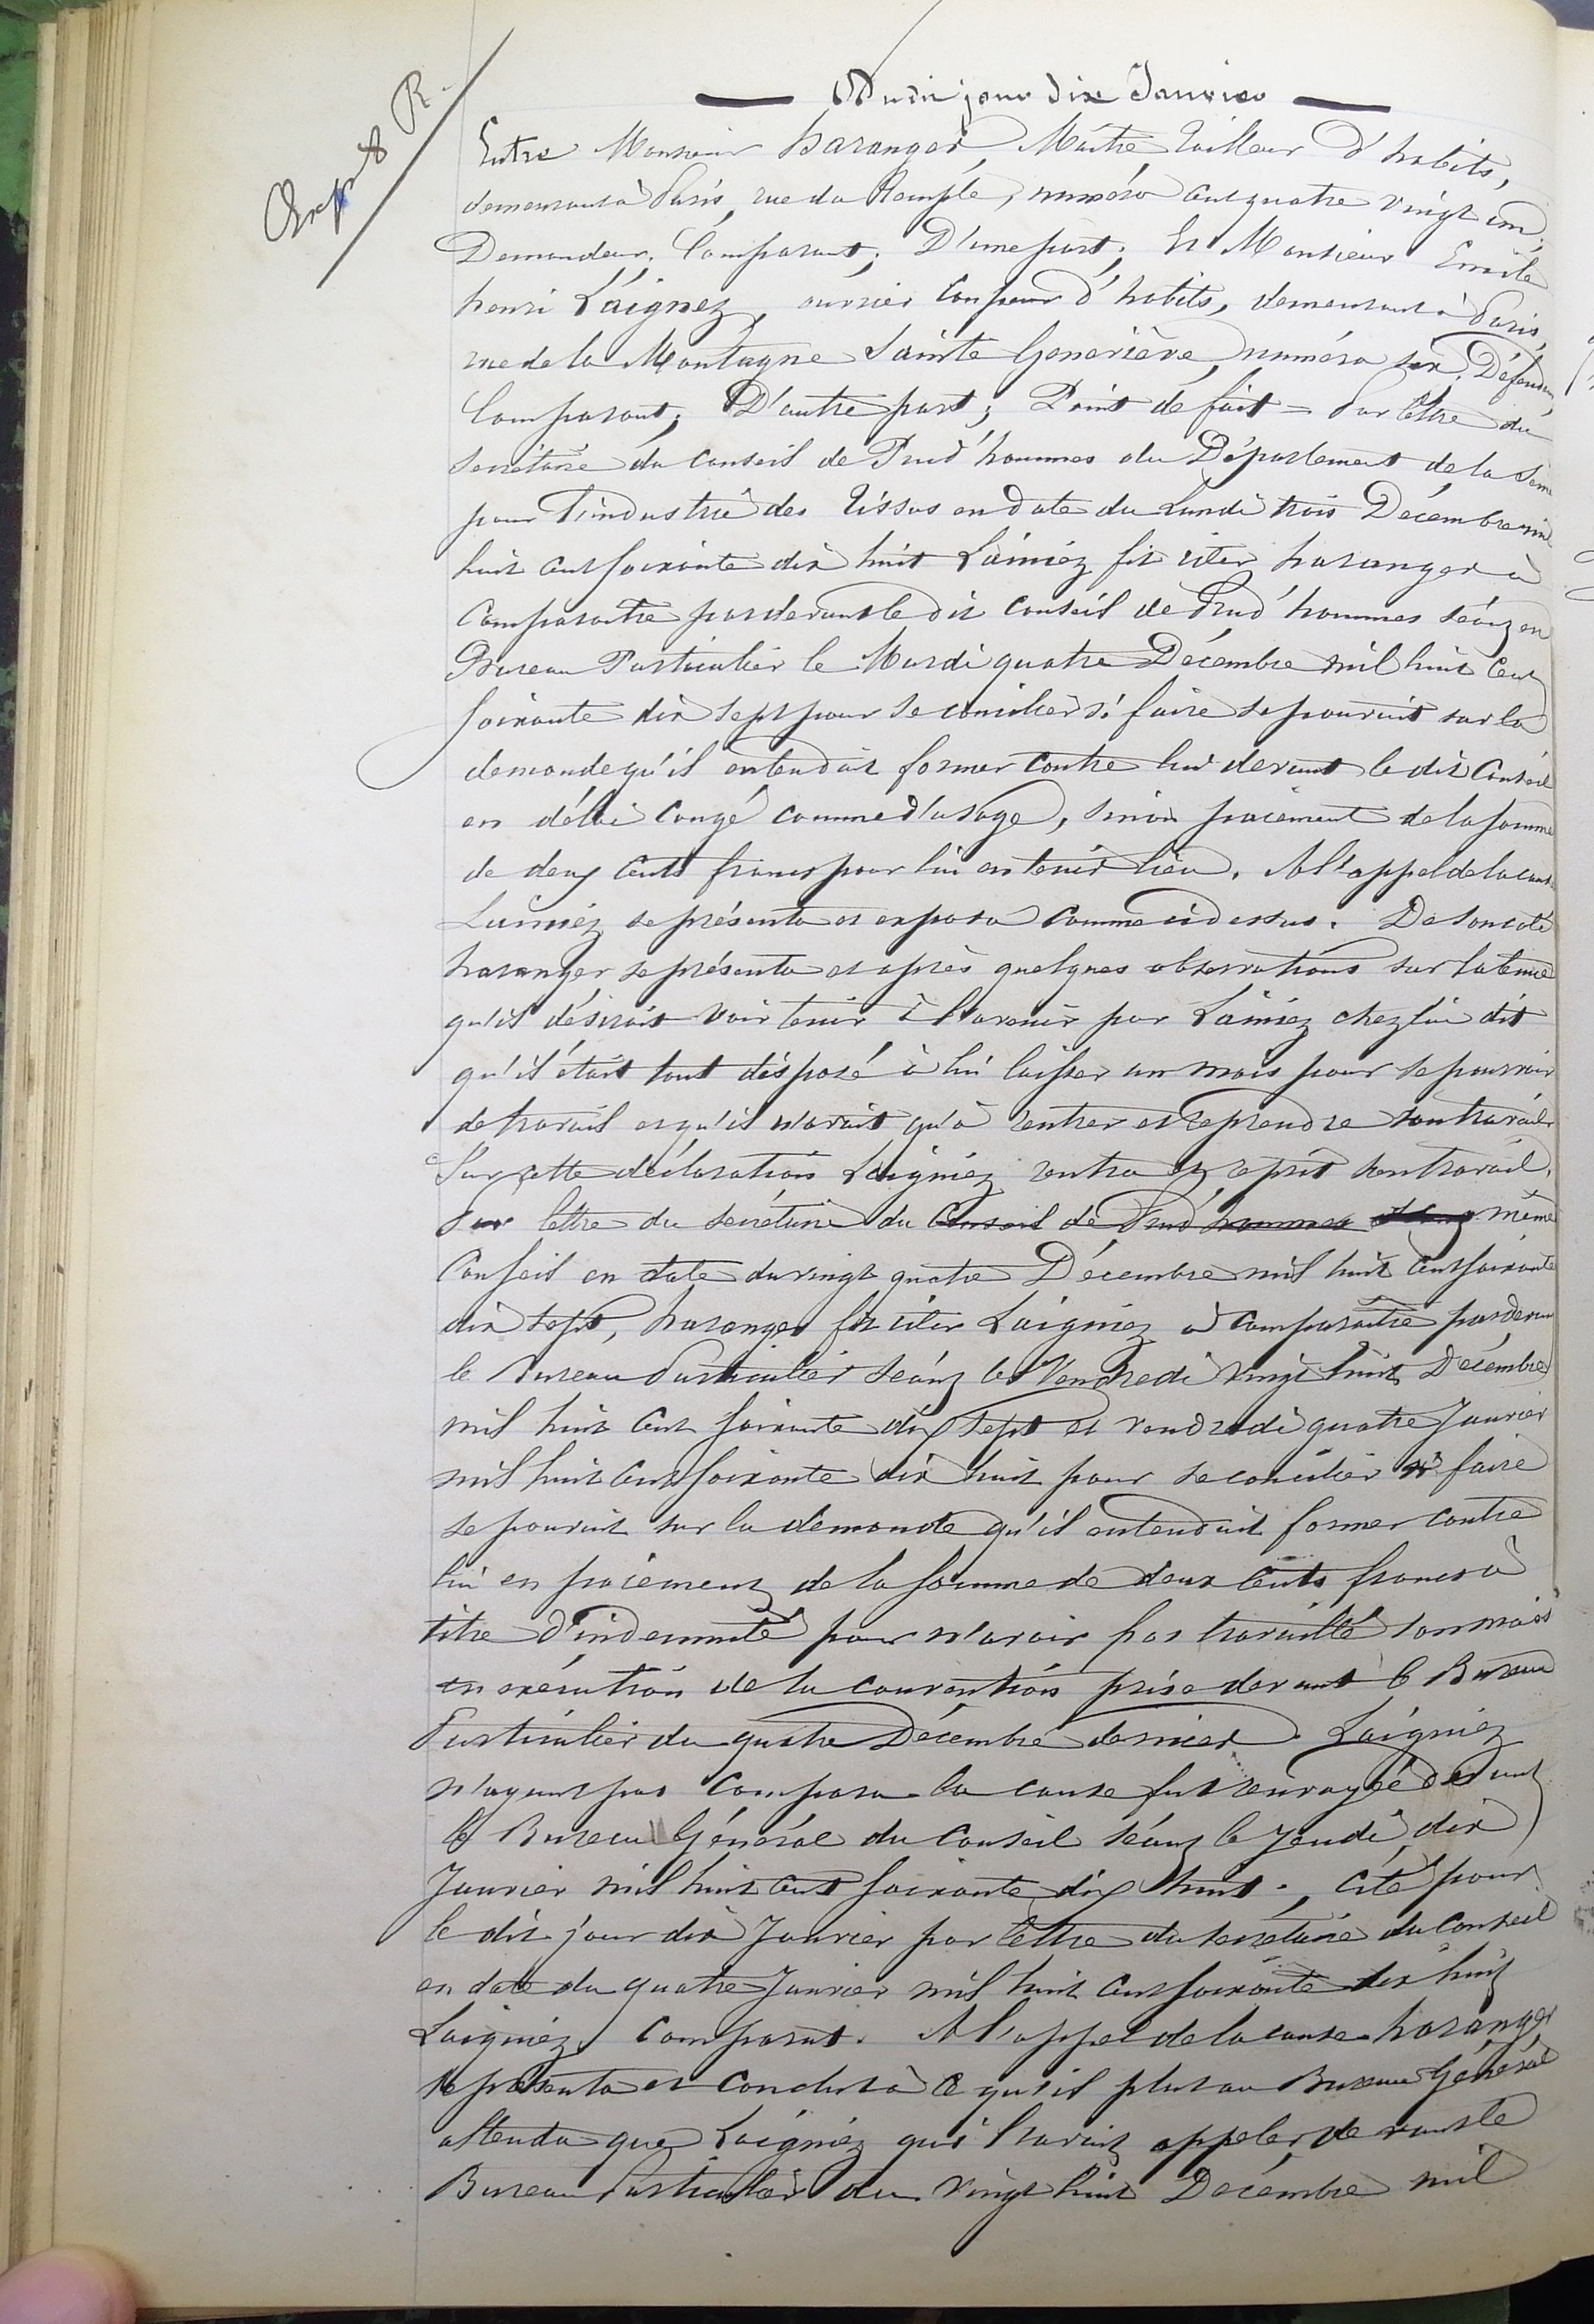 Du dit jour dix Janvier
Entre Monsieur haranger, Maître Tailleur d'habits,
demeurant à Paris, rue du Temple, numéro cent quatre vingt un;
Demandeur; Comparant; D'une part; Et Monsieur Emile
henri Laignez, ouvrier coupeur d'habits, demeurant à Paris,
rue de la Montagne Sainte Geneviève, numéro six; Défendeur;
Comparant; D'autre part; Point de fait = Par lettre du
secrétaire du Conseil de Prud'hommes du Département de la Seine
pour l'industrie des Tissus en date du Lundi trois Décembre mil
huit cent soixante dix huit Lainiez fit citer haranger à
Comparaitre pardevant le dit Conseil de Prud'hommes séant en
Bureau Particulier le Mardi quatre Décembre mil huit cent
soixante dix sept pour se concilier si faire se pouvait sur la
demande qu'il entendait former contre lui devant le dit Conseil
en délai congé comme d'usage, sinon paiement de la somme
de deux cents francs pour lui en tenir lieu. A l'appel de la cause
Lainiez se présenta et exposa comme ci dessus. De son coté
haranger se présenta et après quelques observations sur la tenue
qu'il désirait voir tenir à l'avenir par Lainiez chez lui dit
qu'il était tout disposé à lui laisser un mois pour se pourvoir
de travail et qu'il n'avait qu'à rentrer et reprendre son travail.
Sur cette déclaration Laigniez rentra et reprit son travail.
Par lettre du secrétaire du Conseil de Prud'hommes même
Conseil en date du vingt quatre Décembre mil huit cent soixante
dix sept, haranger fit citer Laigniez à comparaitre pardevant
le Bureau Particulier séant les Vendredi vingt huit Décembre
mil huit cent soixante dix sept et vendredi quatre Janvier
mil huit cent soixante dix huit pour se concilier si faire
se pouvait sur la demande qu'il entendait former contre
lui en paiement de la somme de deux cents francs à
titre d'indemnité pour n'avoir pas travaillé son mois
en exécution de la convention prise devant le Bureau
Particulier du quatre Décembre dernier. Laigniez
n'ayant pas comparu la cause fut renvoyée devant
le Bureau Général du Conseil séant le Jeudi dix
Janvier mil huit cent soixante dix huit. Cité pour
le dit jour dix Janvier par lettre du secrétaire du Conseil
en date du quatre Janvier mil huit cent soixante dix huit
Laigniez comparut. A l'appel de la cause haranger
se présenta et conclut à ce qu'il plut au Bureau Général
attendu que Laigniez qu'il avait appeler devant le
Bureau Particulier du vingt huit Décembre mil